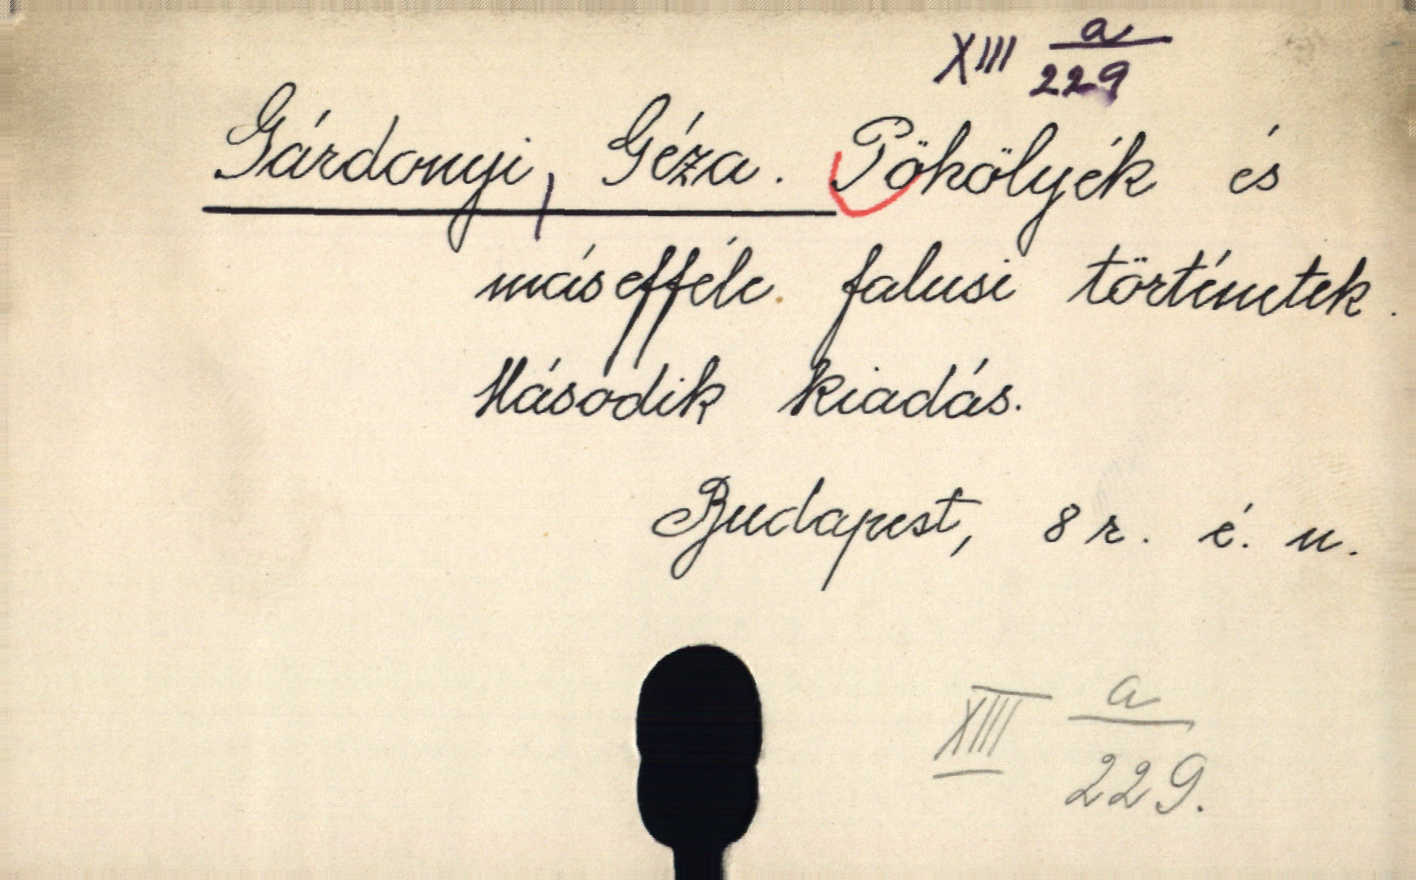 XIII a/229
Gárdonyi, Géza. Pöhölyék és
másefféle falusi történetek.
Második kiadás.
Budapest, 8 r. é. n.
XIII a/229.